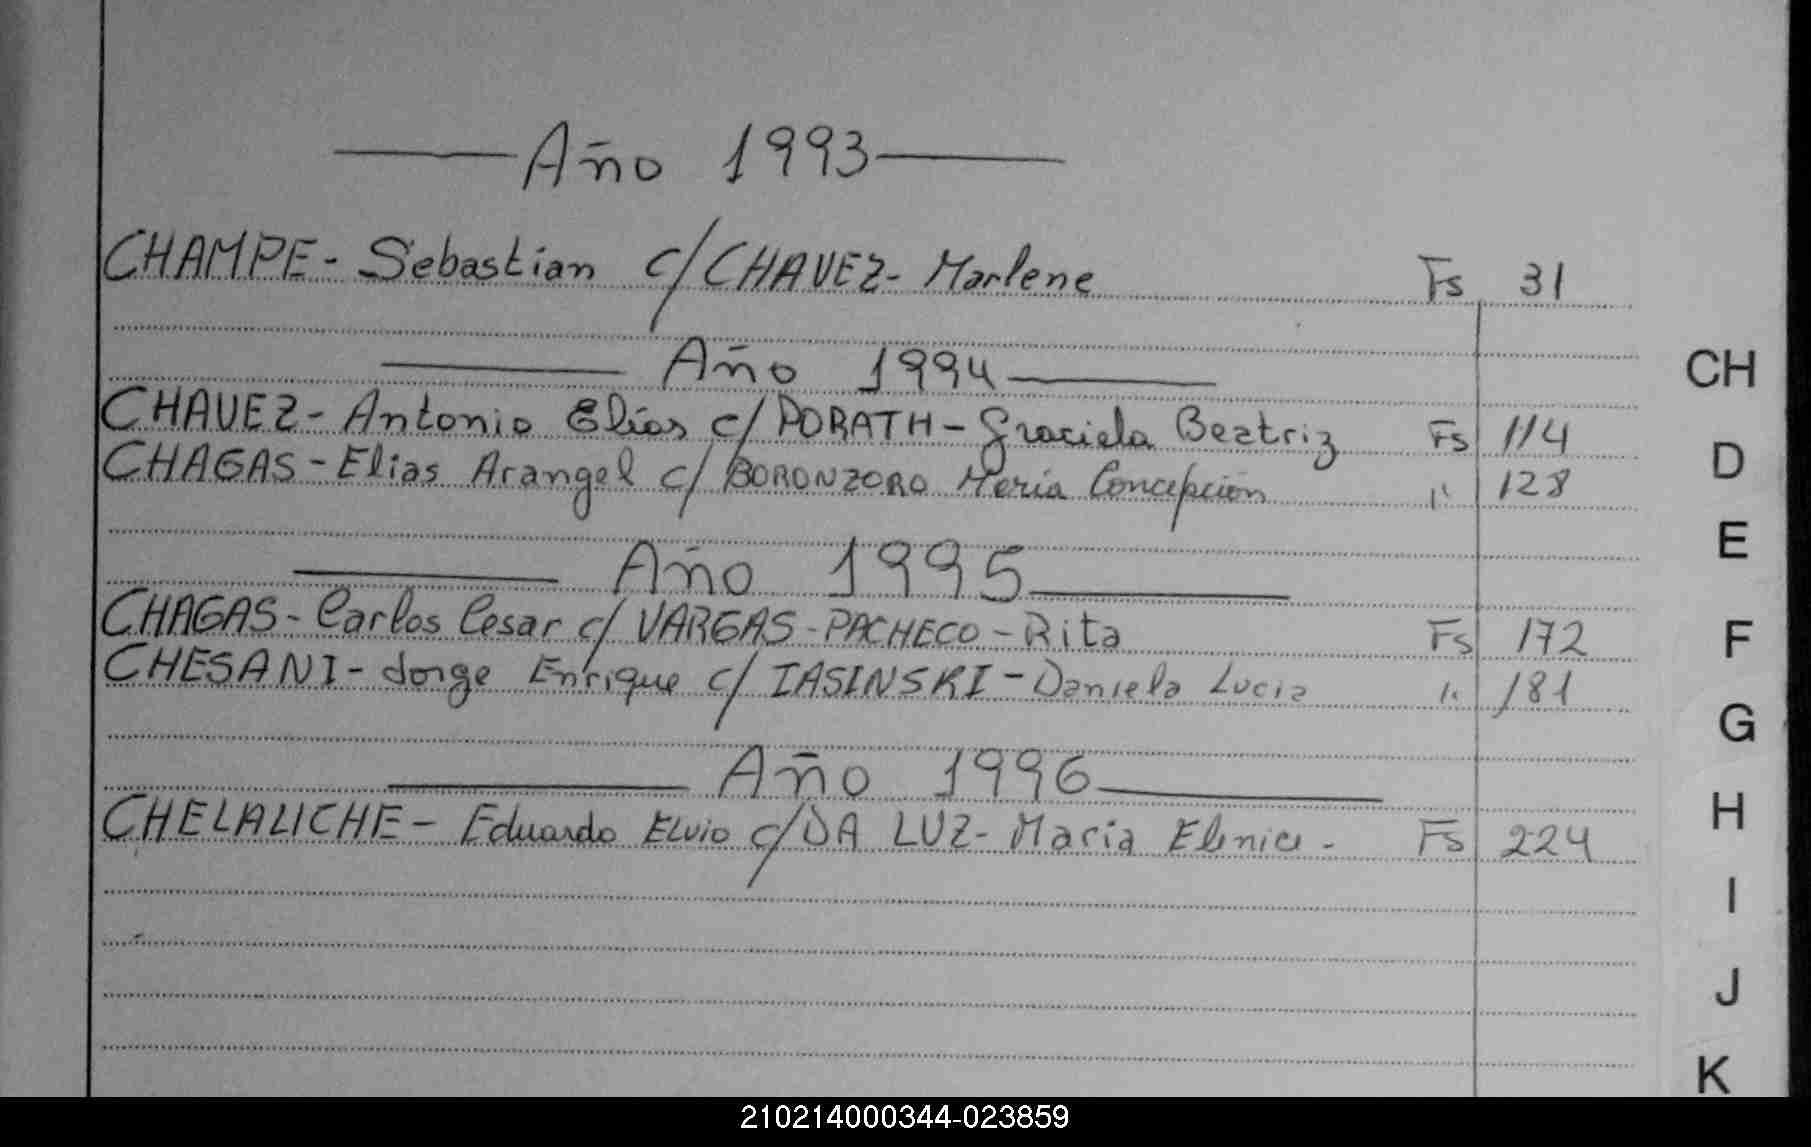 Año 1993
CHAMPE - Sebastian c/ CHAVEZ - Marlene Fs 31
Año 1994
CHAVEZ - Antonio Elias c/ PORATH - Graciela Beatriz Fs 114
CHAGAS - Elias Arangel c/ BORONZORO Maria Concepcion " 128
Año 1995
CHAGAS - Carlos Cesar c/ VARGAS - PACHECO - Rita Fs 172
CHESANI - Jorge Enrique c/ IASINSKI - Daniela Lucia " 181
Año 1996
CHELALICHE - Eduardo Elvio c/ DA LUZ - Maria Elenice - Fs 224
CH
D
E
F
G
H
I
J
K
210214000344-023859